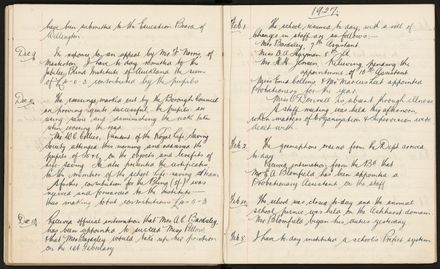 has been submitted to the Education Board of
Wellington
Dec 9 In response to an appeal by Mr F. Perry, of
Masterton, I have to-day remitted by the
Jubilee Blind Institute of Auckland the sum
of £2-0-3 contributed by the pupils
The crossings marked out by the Borough Council
are proving quite successful. The pupils are
using them and diminishing the risk taken
when crossing the road.
Mr W.C. Colless, of the Royal Life Saving
Society attended this morning and addressed the
pupils of on the objects and benefits of
life saving. He also presented the certificates
to the members of the school Life Saving Team.
A further contribution for the Blind was
received and forwarded to the Institute
thus making total contributions £2-0-3
Received official information that Miss A.E. Bardsley
has been appointed to succeed Miss
that Miss Bardsley would take up her position
on the 1st February
1937.
Feb 1 The school resumed to-day with a roll of
Changes in staff are as follows:-
Miss Bardsley, 7th Assistant
Miss B.A. 8th
Mr H.H. Jensen Relieving pending the
appointment of 10th Assistant
Miss Eva Colling & Mr appointed
Probationary for the year.
Miss C. is absent through illness
A staff meeting was held this afternoon
when matters of Organisation & Supervision were
dealt with
Feb 2 The gramophone on loan from the Dept arrived
to-day
Received intimation from the Bd that
Mr G.A. Blomfield has been appointed a
Probationary Assistant on the staff
The school was closed to-day and the annual
school picnic was held on the Ashhurst domain.
Mr Blomfield began his duties yesterday
Feb 8 I have to-day instituted a school Prefect system.